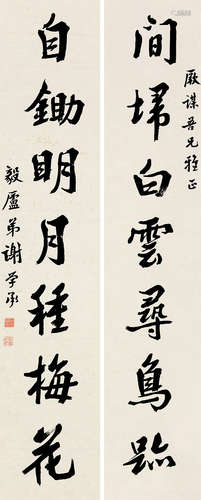 厥謀吾兄雅正
間埽白雲尋鳥跡
自鋤明月種梅花
毅廬弟謝學承